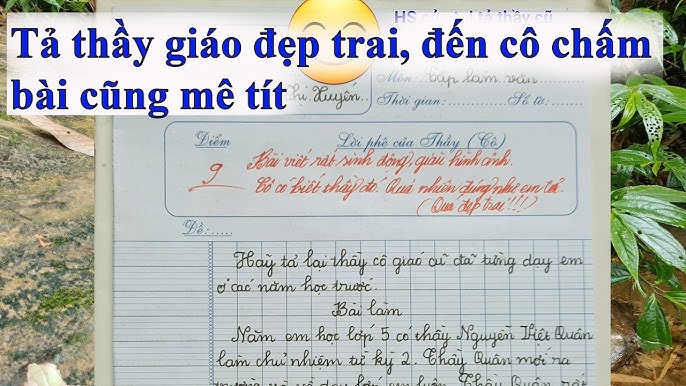 HS
tả thầy cũ
Tả thầy giáo đẹp trai, đến cô chấm
bài cũng mê tít
Môn: Tập làm văn
Thị Huyền
Thời gian: Số tờ:
Điểm
Lời phê của Thầy (Cô)
9
Bài viết rất sinh động, giàu hình ảnh.
Cô có biết thầy đó. Quả nhiên đúng như em tả.
(Quá đẹp trai!!!)
Đề:.....
Hãy tả lại thầy cô giáo cũ đã từng dạy em
ở các năm học trước.
Bài làm
Năm em học lớp 5 có thầy Nguyễn Việt Quân
làm chủ nhiệm từ kỳ 2. Thầy Quân mới ra
trường và về dạy lớp em luôn. Thầy Quân rất